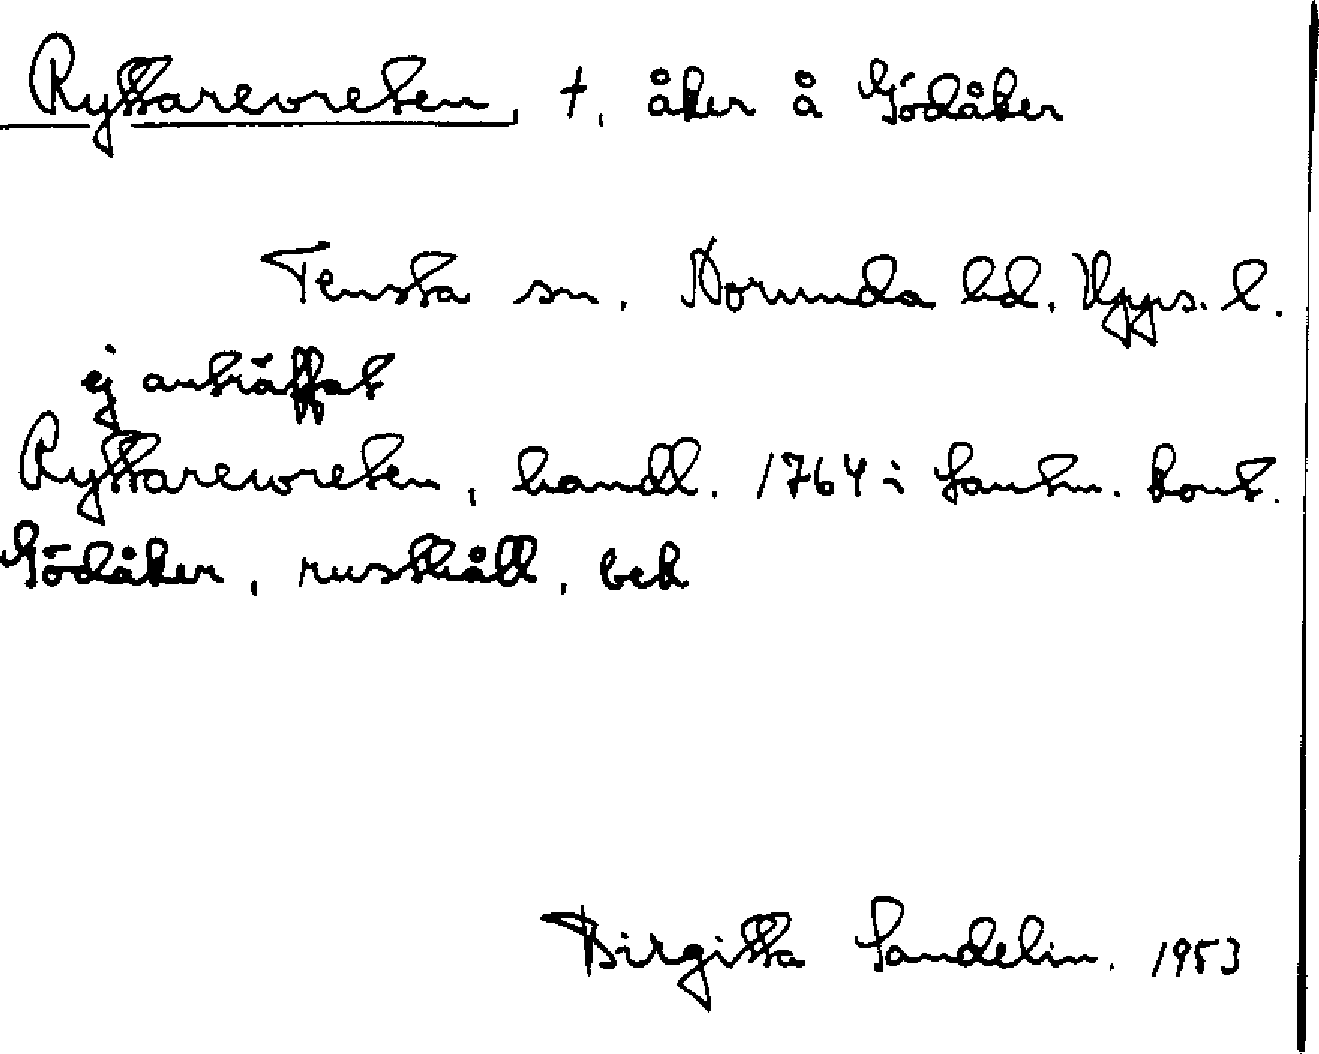 Ryttarevreten, †, åker å Gödåker
Tensta sn. Norunda hd. Upps. l.
ej anträffat
Ryttarewreten, handl. 1764 i Lantm. kont.
Gödåker, rusthåll, bek
Birgitta Sandelin. 1953